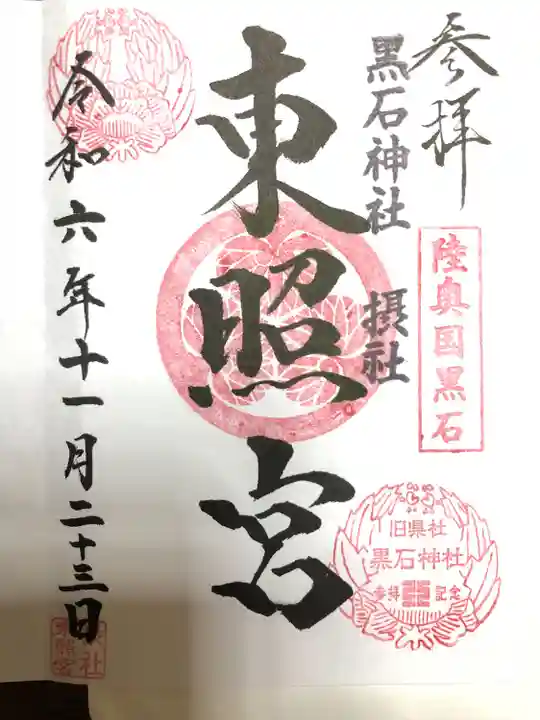 参拝
陸奥国黒石
黒石神社 摂社
東照宮
令和六年十一月二十三日
旧県社
黒石神社
参拝 記念